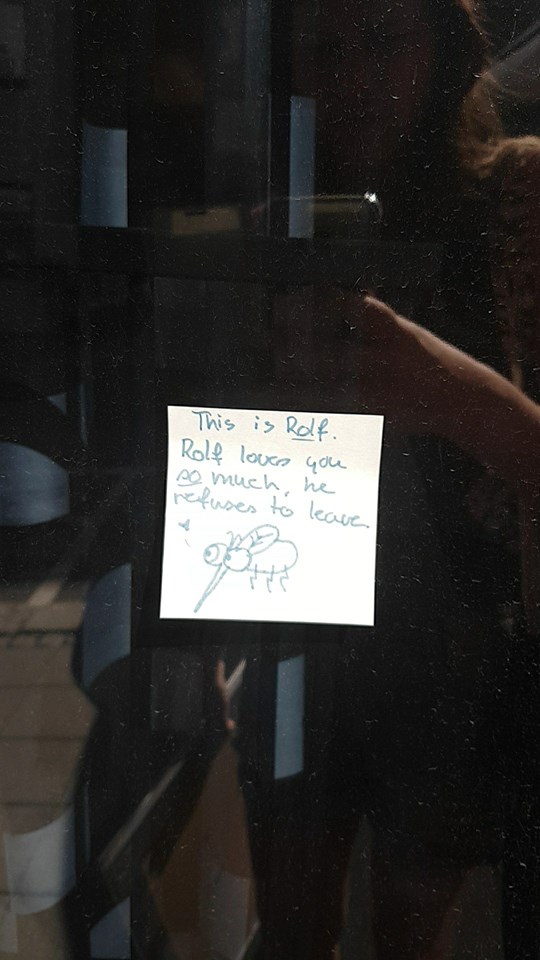 This is Rolf.
Rolf loves you
so much, he
refuses to leave